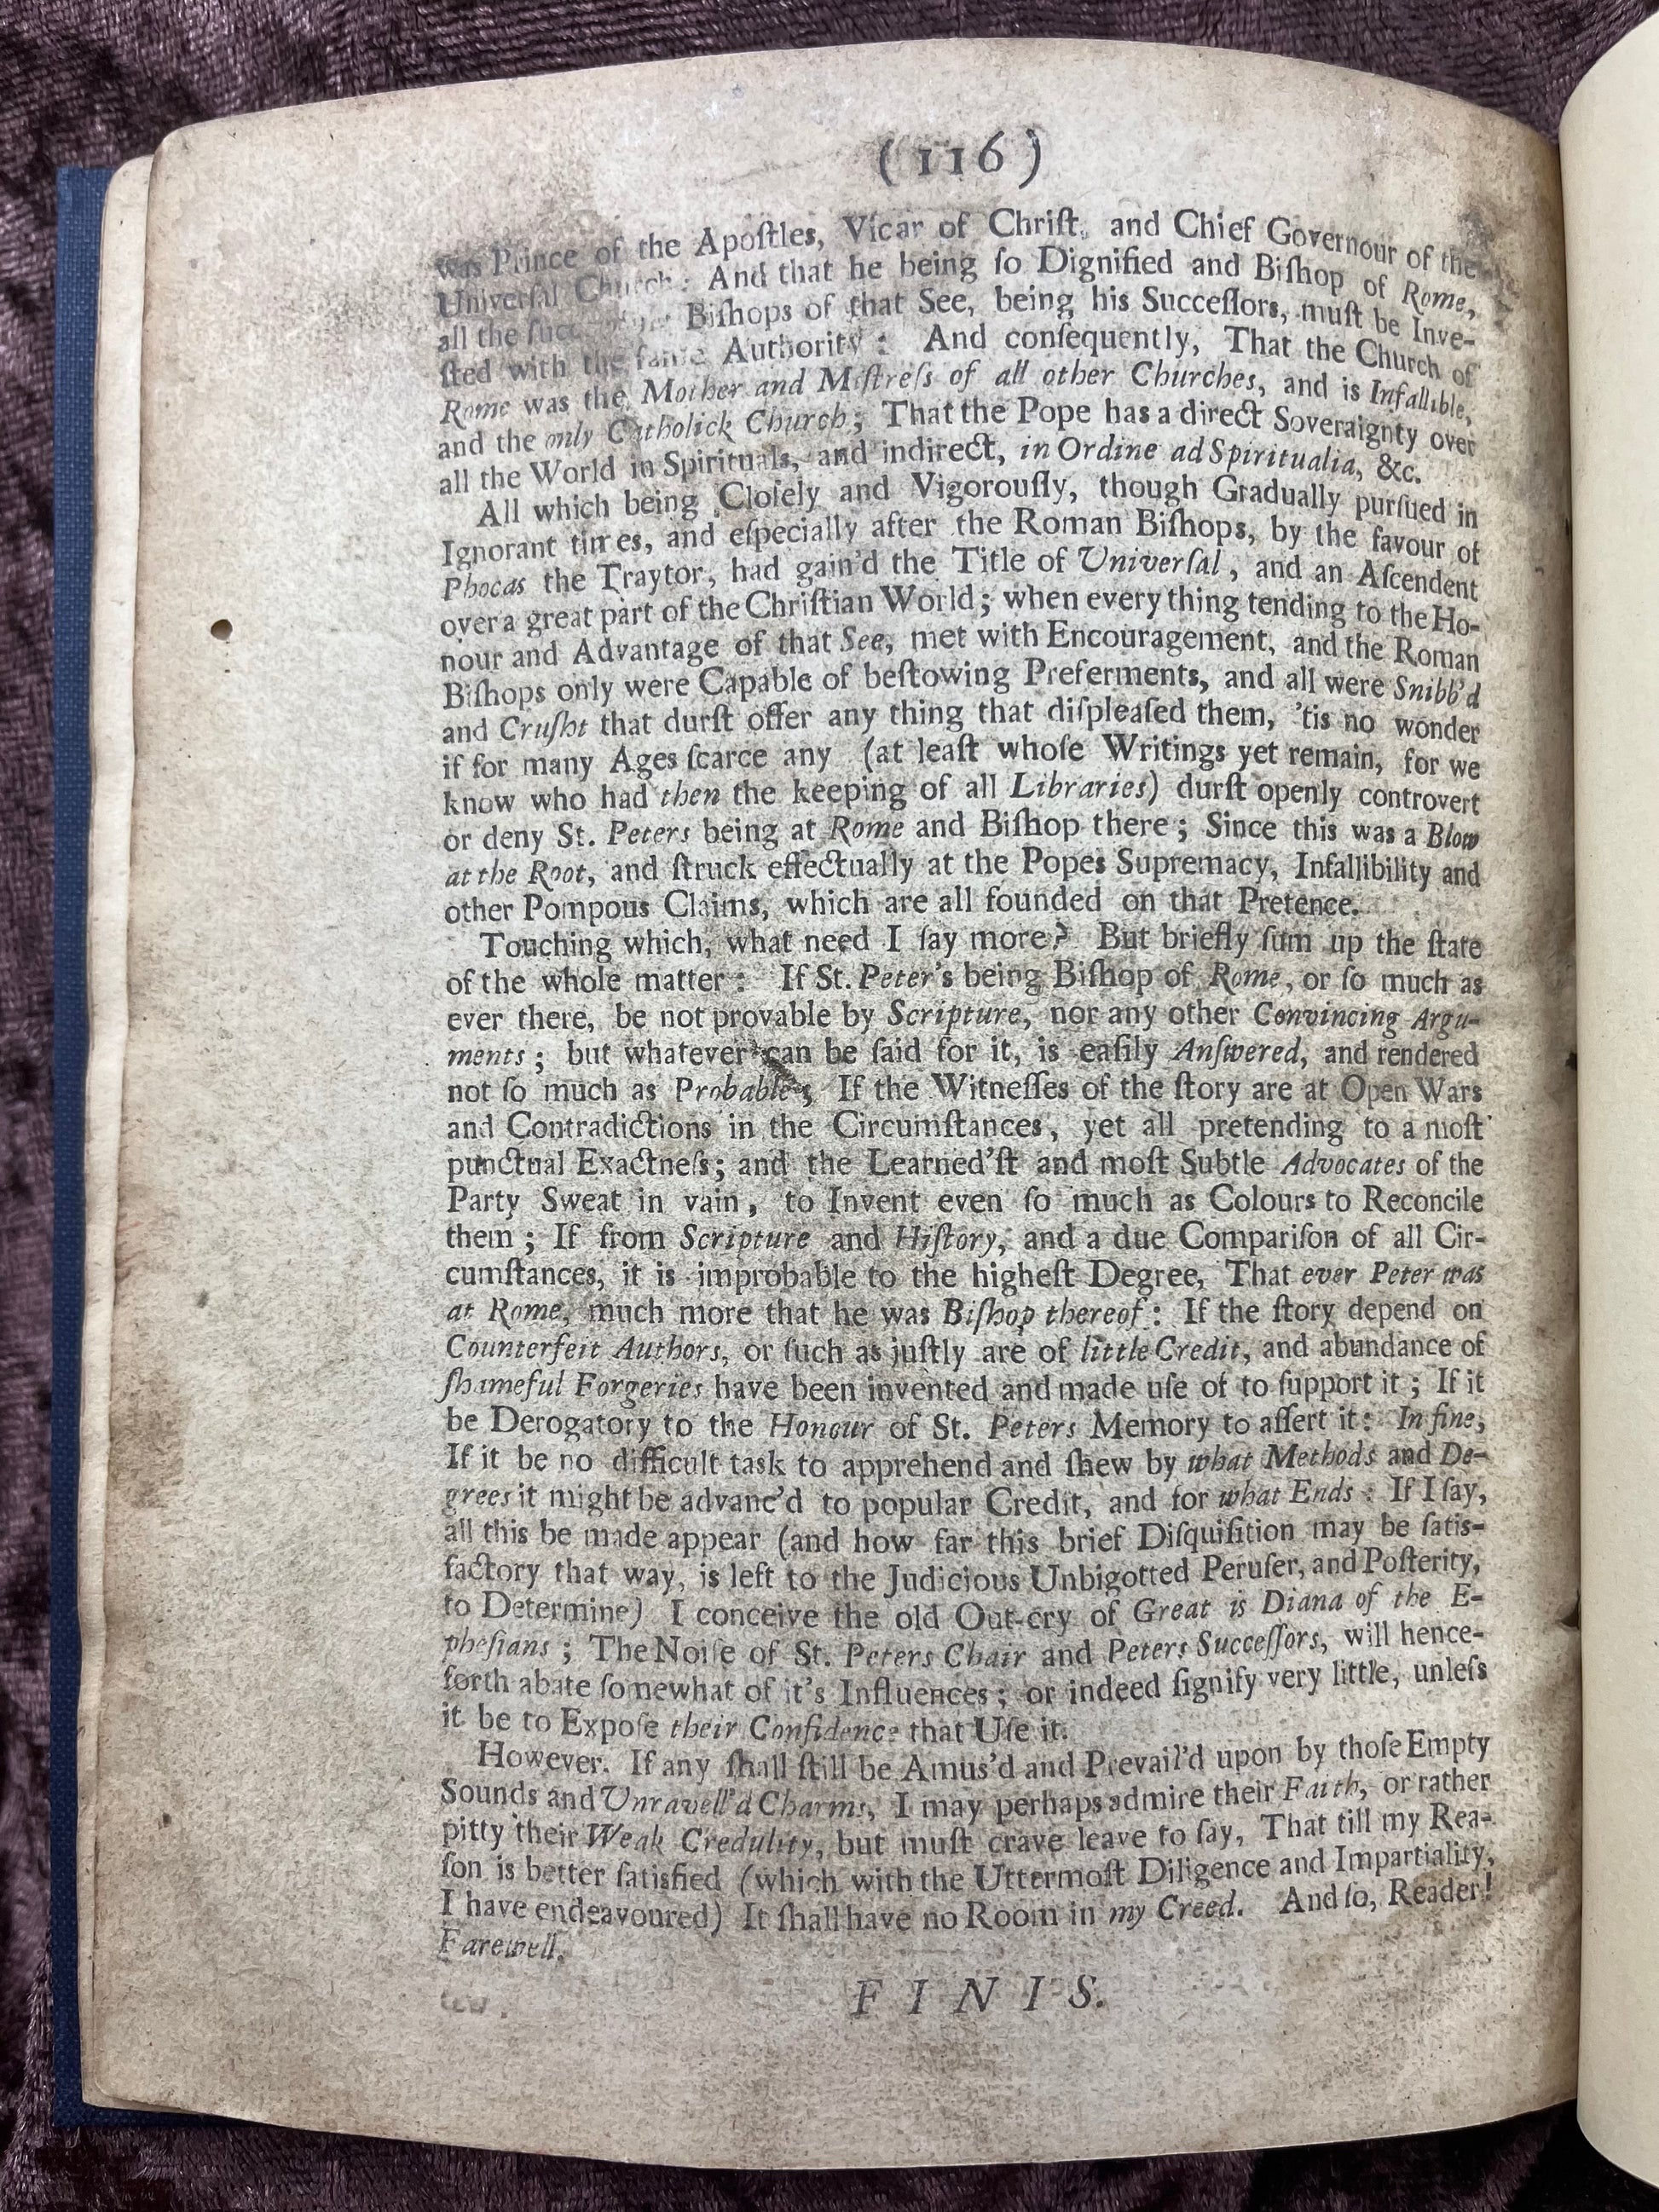 (116)
was Prince of the Apoſtles, Vicar of Chriſt, and Chief Governour of the
Univerſal Church: And that he being ſo Dignified and Biſhop of Rome,
all the Biſhops of that See, being his Succeſſors, muſt be Inve-
ſted with the ſame Authority: And conſequently, That the Church of
Rome was the Mother and Miſtreſs of all other Churches, and is Infallible,
and the only Catholick Church; That the Pope has a direct Soveraignty over
all the World in Spirituals, and indirect, in Ordine ad Spiritualia, &c.
All which being Cloſely and Vigorouſly, though Gradually purſued in
Ignorant times, and eſpecially after the Roman Biſhops, by the favour of
Phocas the Traytor, had gain'd the Title of Univerſal, and an Aſcendent
over a great part of the Chriſtian World; when every thing tending to the Ho-
nour and Advantage of that See, met with Encouragement, and the Roman
Biſhops only were Capable of beſtowing Preferments, and all were Snibb'd
and Cruſht that durſt offer any thing that diſpleaſed them, 'tis no wonder
if for many Ages ſcarce any (at leaſt whoſe Writings yet remain, for we
know who had then the keeping of all Libraries) durſt openly controvert
or deny St. Peters being at Rome and Biſhop there; Since this was a Blow
at the Root, and ſtruck effectually at the Popes Supremacy, Infallibility and
other Pompous Claims, which are all founded on that Pretence.
Touching which, what need I ſay more? But briefly ſum up the ſtate
of the whole matter: If St. Peter's being Biſhop of Rome, or ſo much as
ever there, be not provable by Scripture, nor any other Convincing Argu-
ments; but whatever can be ſaid for it, is eaſily Anſwered, and rendered
not ſo much as Probable; If the Witneſſes of the ſtory are at Open Wars
and Contradictions in the Circumſtances, yet all pretending to a moſt
punctual Exactneſs; and the Learned'ſt and moſt Subtle Advocates of the
Party Sweat in vain, to Invent even ſo much as Colours to Reconcile
them; If from Scripture and Hiſtory, and a due Compariſon of all Cir-
cumſtances, it is improbable to the higheſt Degree, That ever Peter was
at Rome, much more that he was Biſhop thereof: If the ſtory depend on
Counterfeit Authors, or ſuch as juſtly are of little Credit, and abundance of
ſhameful Forgeries have been invented and made uſe of to ſupport it; If it
be Derogatory to the Honour of St. Peters Memory to aſſert it: In fine,
If it be no difficult task to apprehend and ſhew by what Methods and De-
grees it might be advanc'd to popular Credit, and for what Ends: If I ſay,
all this be made appear (and how far this brief Diſquiſition may be ſatis-
factory that way, is left to the Judicious Unbigotted Peruſer, and Poſterity,
to Determine) I conceive the old Out-cry of Great is Diana of the E-
pheſians; The Noiſe of St. Peters Chair and Peters Succeſſors, will hence-
forth abate ſomewhat of it's Influences; or indeed ſignify very little, unleſs
it be to Expoſe their Confidence that Uſe it.
However. If any ſhall ſtill be Amus'd and Prevail'd upon by thoſe Empty
Sounds and Unravell'd Charms, I may perhaps admire their Faith, or rather
pitty their Weak Credulity, but muſt crave leave to ſay, That till my Rea-
ſon is better ſatisfied (which with the Uttermoſt Diligence and Impartiality,
I have endeavoured) It ſhall have no Room in my Creed. And ſo, Reader!
Farewell.
FINIS.